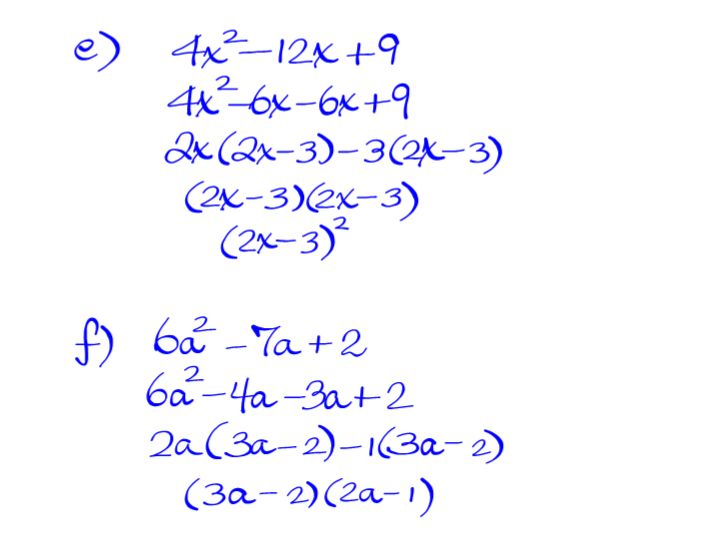 e) 4x²-12x+9
4x²-6x-6x+9
2x(2x-3)-3(2x-3)
(2x-3)(2x-3)
(2x-3)²
f) 6a²-7a+2
6a²-4a-3a+2
2a(3a-2)-1(3a-2)
(3a-2)(2a-1)